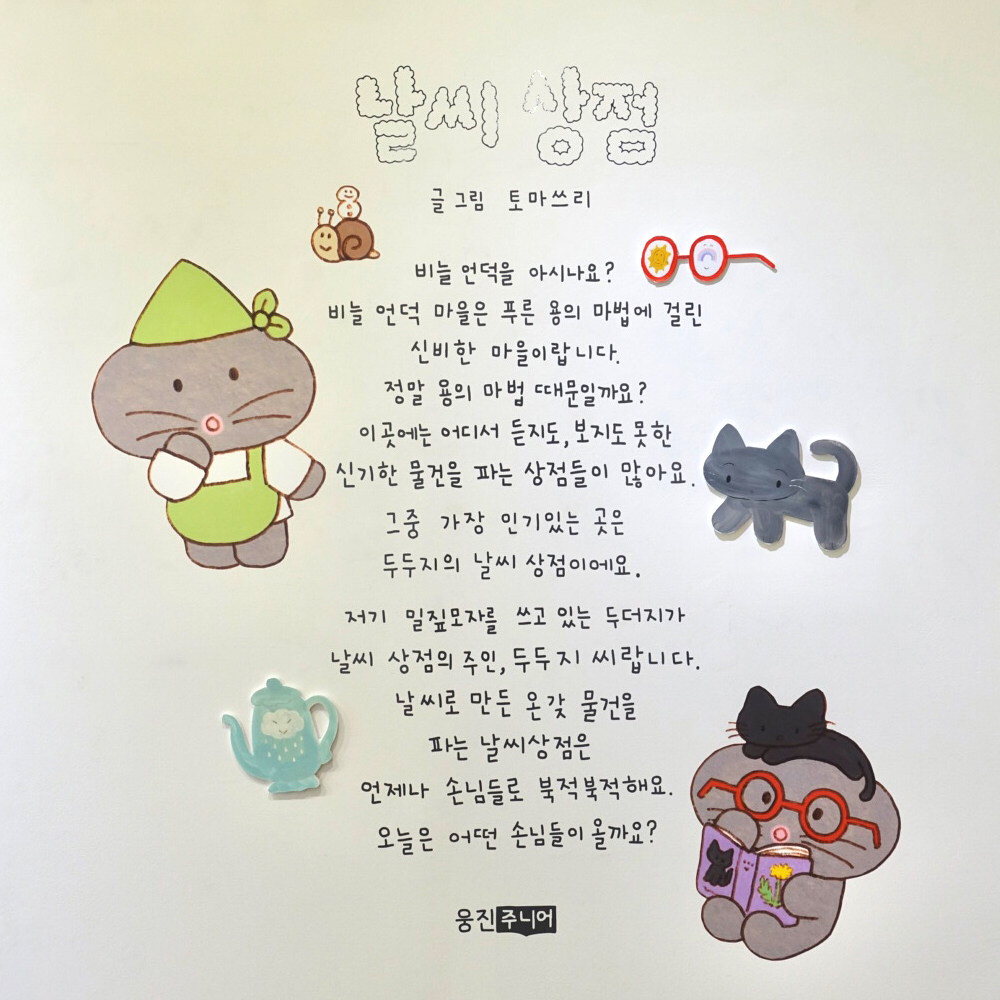 날씨 상점
글 그림 토마쓰리
비늘 언덕을 아시나요?
비늘 언덕 마을은 푸른 용의 마법에 걸린
신비한 마을이랍니다.
정말 용의 마법 때문일까요?
이곳에는 어디서 듣지도, 보지도 못한
신기한 물건을 파는 상점들이 많아요.
그중 가장 인기있는 곳은
두두지의 날씨 상점이에요.
저기 밀짚모자를 쓰고 있는 두더지가
날씨 상점의 주인, 두두지 씨랍니다.
날씨로 만든 온갖 물건을
파는 날씨상점은
언제나 손님들로 북적북적해요.
오늘은 어떤 손님들이 올까요?
웅진주니어